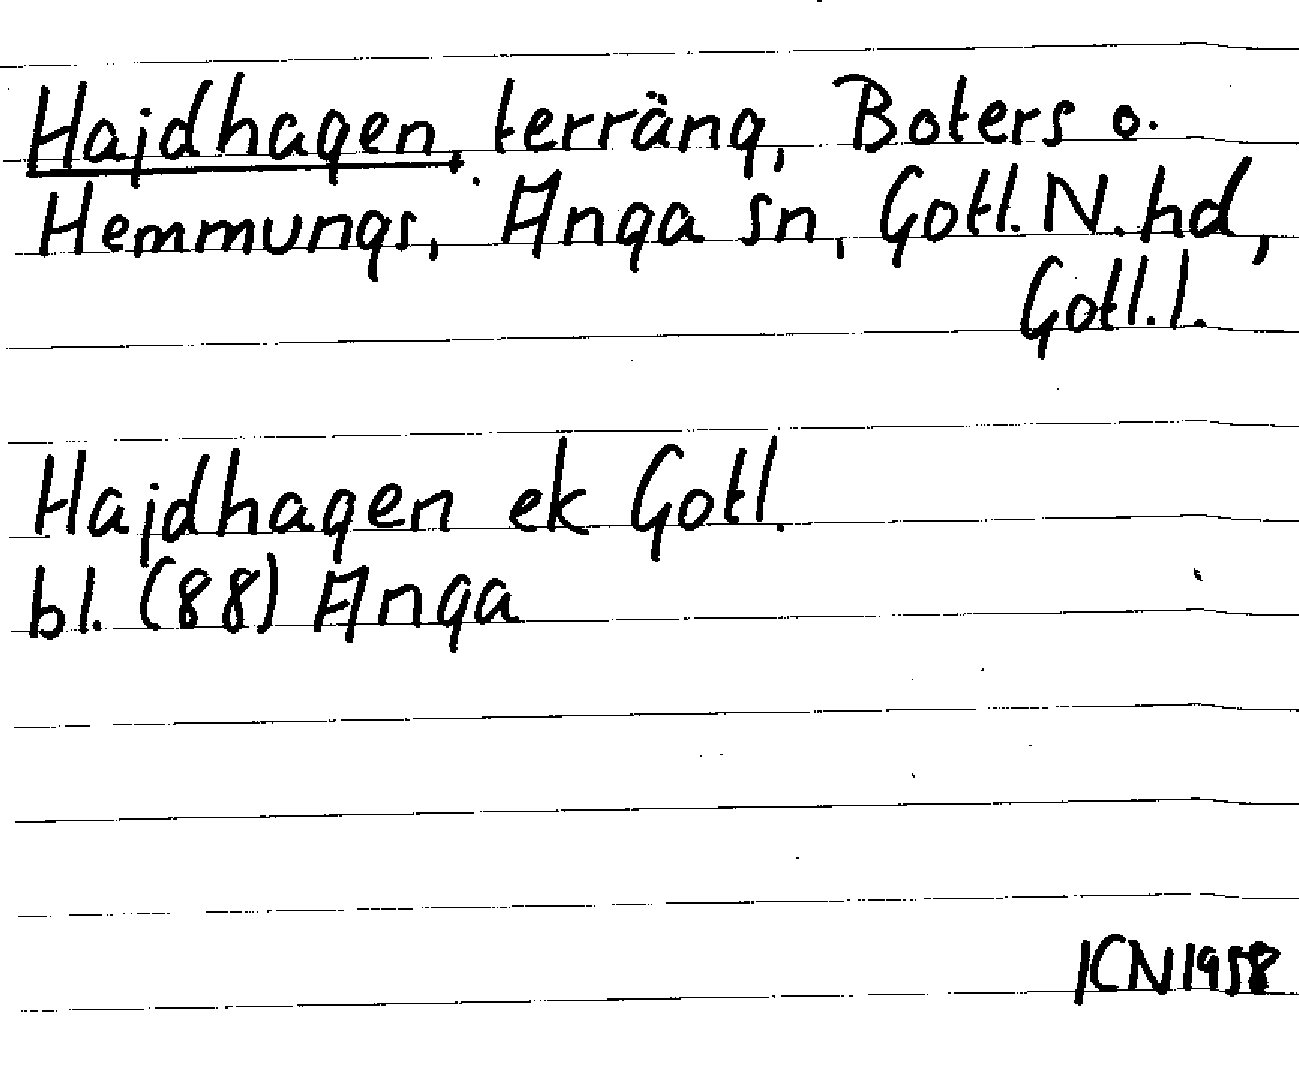 Hajdhagen, terräng, Boters o.
Hemmungs, Anga sn, Gotl. N. hd,
Gotl. l.
Hajdhagen ek Gotl.
bl. (88) Anga
KN 1958